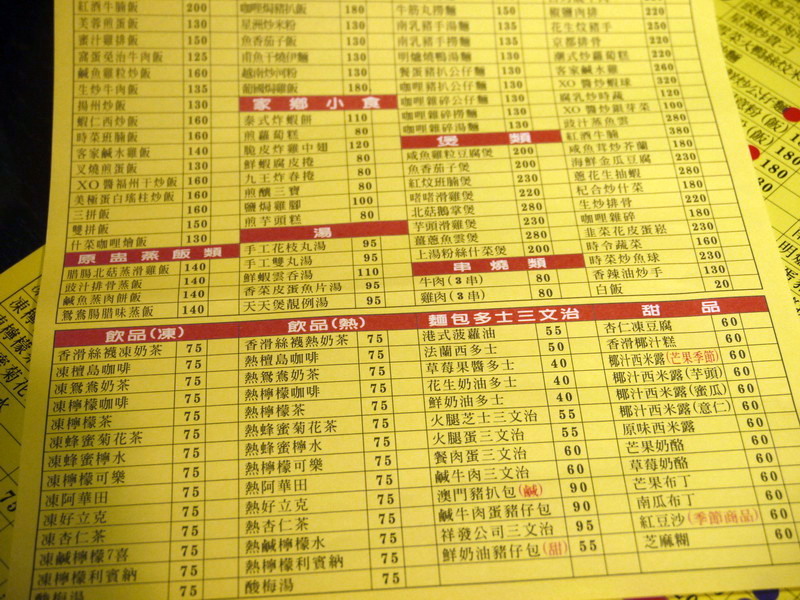 紅酒牛腩飯 200
芙蓉煎蛋飯 130
蜜汁雞排飯 150
窩蛋免治牛肉飯 125
鹹魚雞粒炒飯 160
生炒牛肉飯 135
揚州炒飯 130
蝦仁西炒飯 160
時菜班腩飯 160
客家鹹水雞飯 140
叉燒煎蛋飯 130
XO醬福州干炒飯 160
美極蛋白瑤柱炒飯 160
三拼飯 130
雙拼飯 150
什菜咖哩燴飯 130
原盅蒸飯類
腊腸北菇蒸滑雞飯 140
豉汁排骨蒸飯 140
鹹魚蒸肉餅飯 140
鴛鴦腸腊味蒸飯 140
咖哩焗豬扒飯 180
星洲炒米粉 130
魚香茄子飯 130
甫魚干燒伊麵 130
越南炒河粉 130
葡國焗雞飯 180
家鄉小食
泰式炸蝦餅 110
煎蘿蔔糕 80
脆皮炸雞中翅 120
鮮蝦腐皮捲 80
九王炸春捲 80
煎釀三寶 80
鹽焗雞腳 100
煎芋頭糕 80
湯
手工花枝丸湯 95
手工雙丸湯 95
鮮蝦雲吞湯 110
香菜皮蛋魚片湯 95
天天煲靚例湯 95
牛筋丸撈麵
南乳豬手湯麵 135
南乳豬手撈麵 135
明爐燒鴨湯麵 130
餐蛋豬扒公仔麵 130
咖哩豬扒公仔麵 130
咖哩雞碎公仔麵 130
咖哩雞碎撈麵 130
咖哩雞碎湯麵 130
煲類
咸魚雞粒豆腐煲 200
魚香茄子煲 200
紅炆班腩煲 230
啫啫滑雞煲 200
北菇鵝掌煲 200
芋頭滑雞煲 230
薑蔥魚雲煲 280
上湯粉絲什菜煲 200
串燒類
牛肉(3串) 80
雞肉(3串) 80
椒鹽肉排 220
花生炆豬手 250
京都排骨 220
潮式炒蘿蔔糕 220
客家鹹水雞 260
XO醬炒蝦球 320
腐乳炒時蔬 120
XO醬炒銀芽菜 100
豉汁蒸魚雲 280
紅酒牛腩 380
咸魚茸炒芥蘭 180
海鮮金瓜豆腐 230
蔥花生抽蝦 280
杞合炒什菜 180
生炒排骨 220
咖哩雞碎 180
韭菜花皮蛋崧 230
時令蔬菜 160
時菜炒魚球 230
香辣油炒手 130
白飯 20
飲品(凍)
香滑絲襪凍奶茶 75
凍檀島咖啡 75
凍鴛鴦奶茶 75
凍檸檬咖啡 75
凍檸檬茶 75
凍蜂蜜菊花茶 75
凍蜂蜜檸水 75
凍檸檬可樂 75
凍阿華田 75
凍好立克 75
凍杏仁茶 75
凍鹹檸檬7喜 75
凍檸檬利賓納 75
酸梅湯 75
飲品(熱)
香滑絲襪熱奶茶 75
熱檀島咖啡 75
熱鴛鴦奶茶 75
熱檸檬咖啡 75
熱檸檬茶 75
熱蜂蜜菊花茶 75
熱蜂蜜檸水 75
熱檸檬可樂 75
熱阿華田 75
熱好立克 75
熱杏仁茶 75
熱鹹檸檬水 75
熱檸檬利賓納 75
酸梅湯 75
麵包多士三文治
港式菠蘿油 55
法蘭西多士 50
草莓果醬多士 40
花生奶油多士 40
鮮奶油多士 40
火腿芝士三文治 55
火腿蛋三文治 55
餐肉蛋三文治 60
鹹牛肉三文治 60
澳門豬扒包(鹹) 90
鹹牛肉蛋豬仔包 90
祥發公司三文治 95
鮮奶油豬仔包(甜) 55
甜品
杏仁凍豆腐 60
香滑椰汁糕 60
椰汁西米露(芒果季節) 60
椰汁西米露(芋頭) 60
椰汁西米露(蜜瓜) 60
椰汁西米露(意仁) 60
原味西米露 60
芒果奶酪 60
草莓奶酪 60
芒果布丁 60
南瓜布丁 60
紅豆沙(季節商品) 60
芝麻糊 60